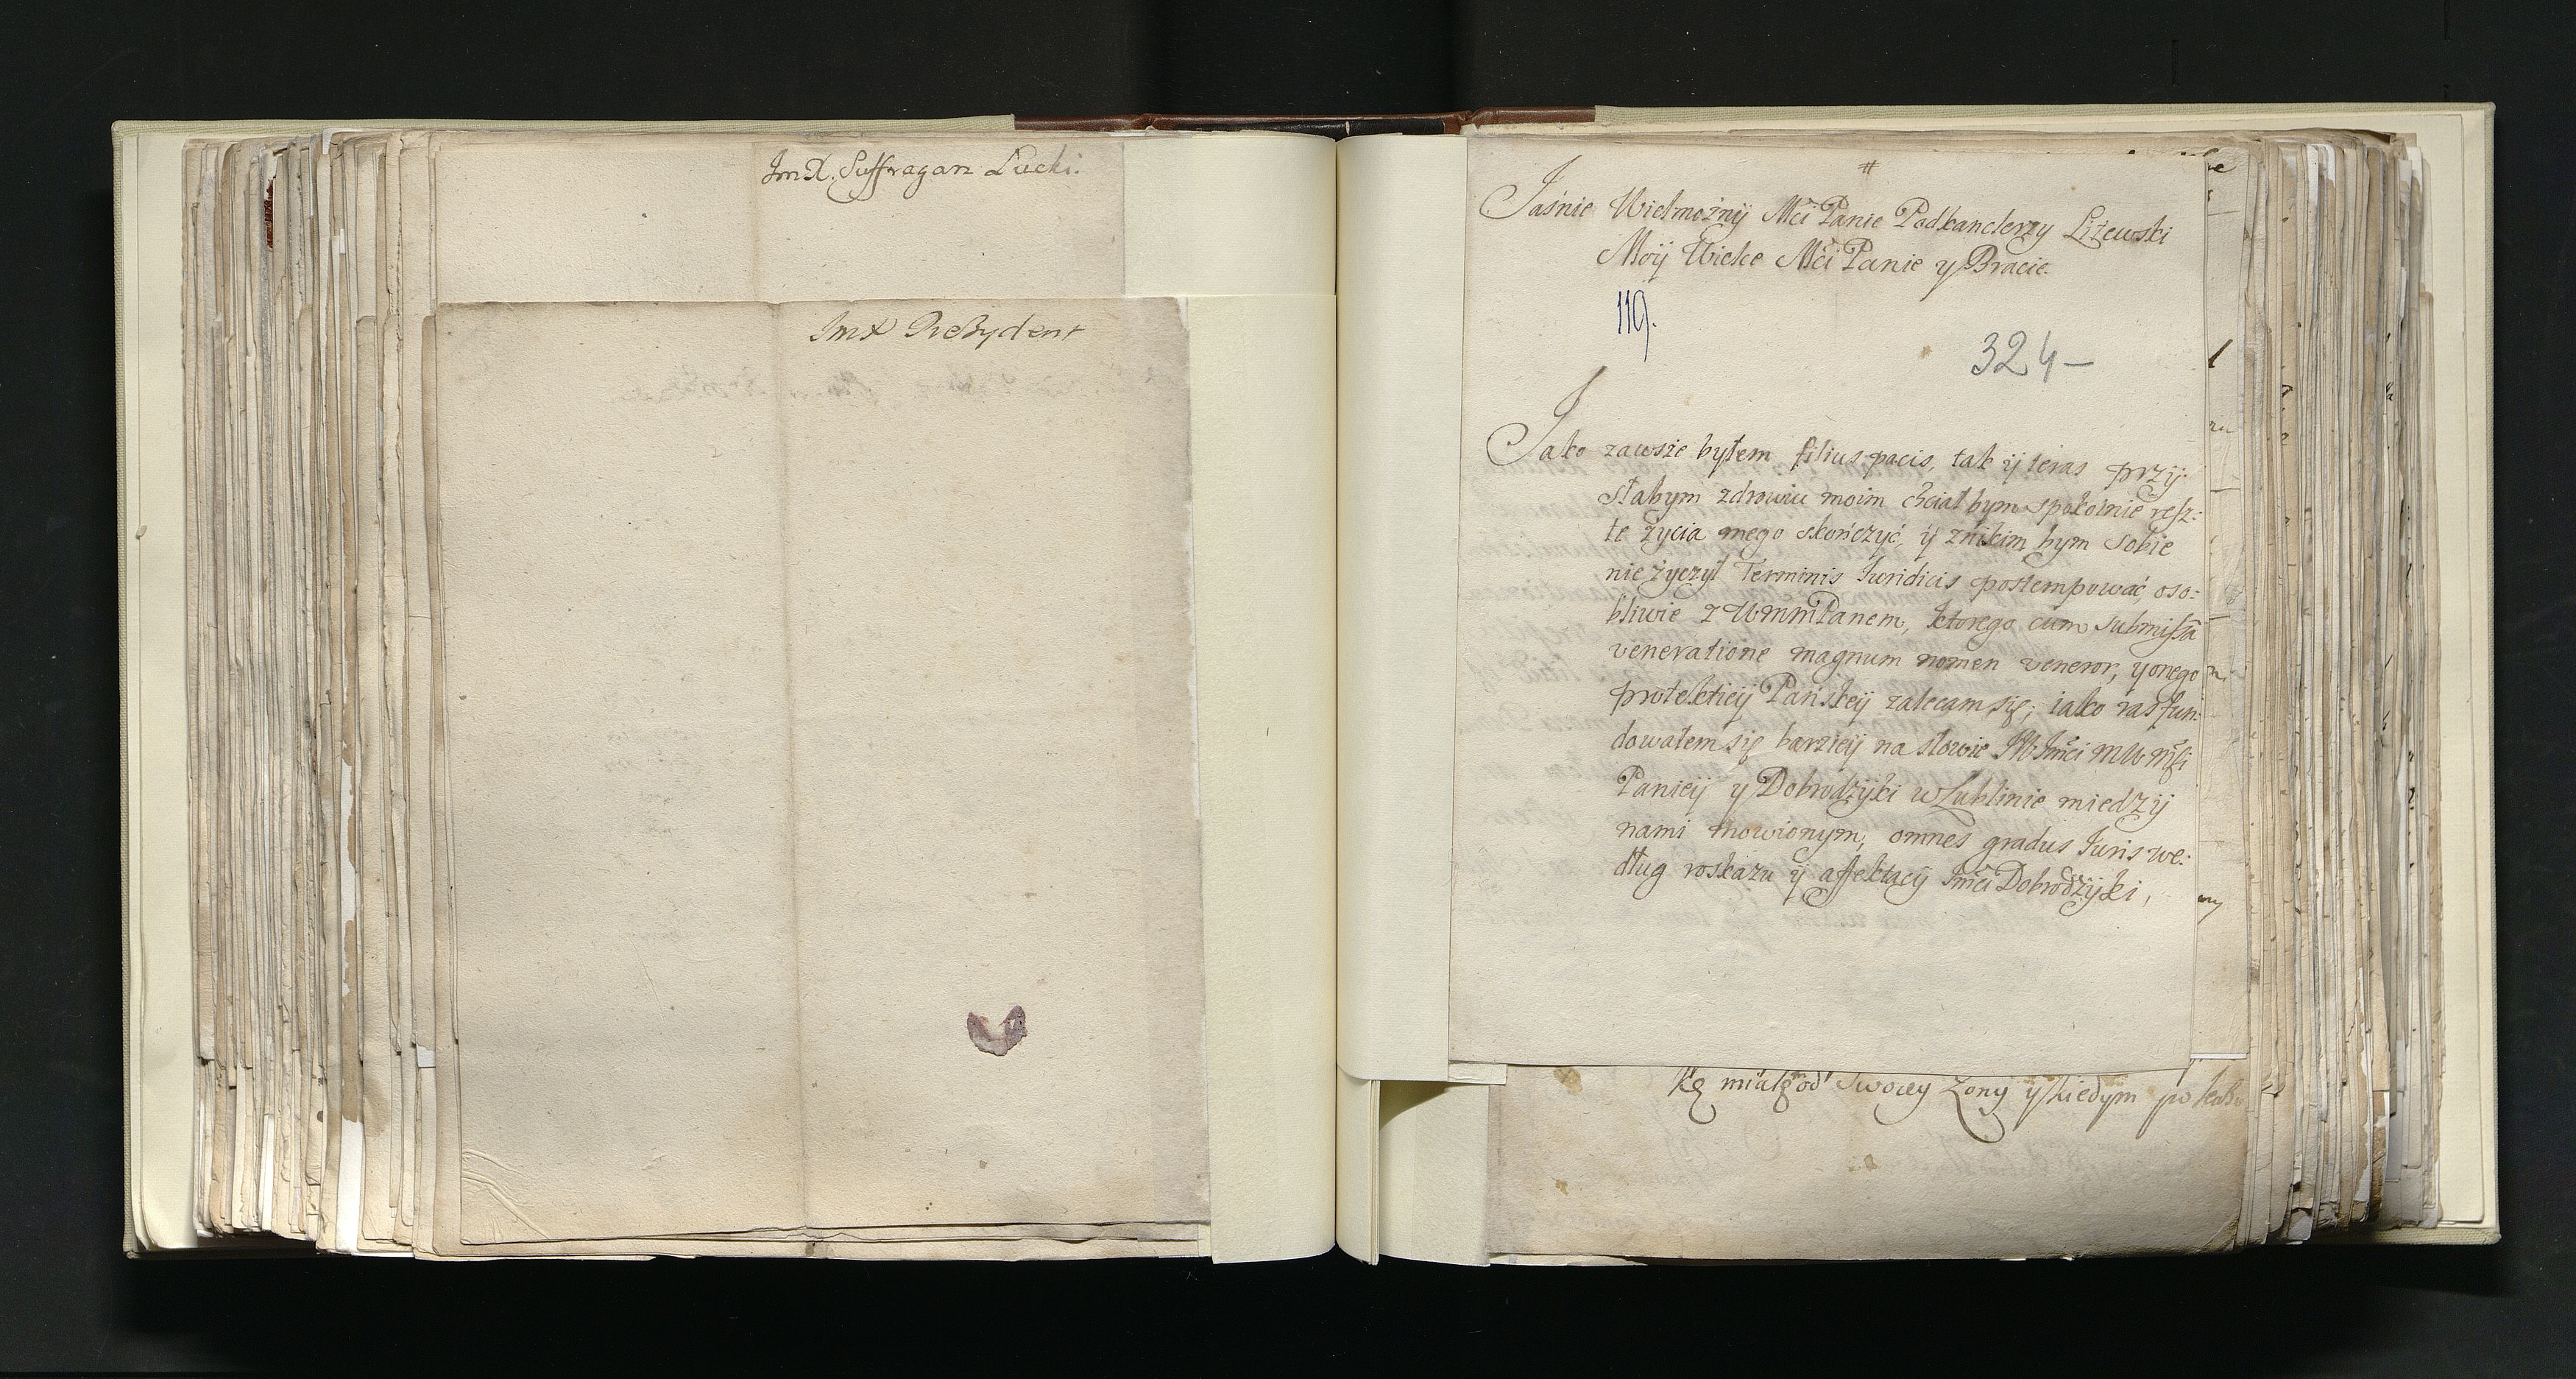 Im X. Suffragan Łucki.
Im X Prezydent
#
Jaśnie Wielmożnÿ Mci Panie Podkanclerzy Litewski
Moÿ Wielce Mci Panie y Bracie.
119.
324 —
Jako zawsze byłem filius pacis, tak ÿ teras przÿ
słabym zdrowiu moim chciał bym spokoinie resz:
te życia mego skończyć, ÿ znikim bym sobie
nie życzył Terminis Iuridicis postempować, oso:
bliwie z WMMPanem, ktorego cum submissa
veneratione magnum nomen veneror, y onego
protekticiÿ Pańskiÿ zalecam się; iako ras fun:
dowałem się barzieÿ na słowie JW Jmci MW Mści
Panieÿ y Dobrodzÿki w Lublinie miedzÿ
nami mowionym, omnes gradus Iuris we:
dług roskazu ÿ affektacÿ Jmci Dobrodzÿki,
kę miał od swoiey Zony ÿ kiedym